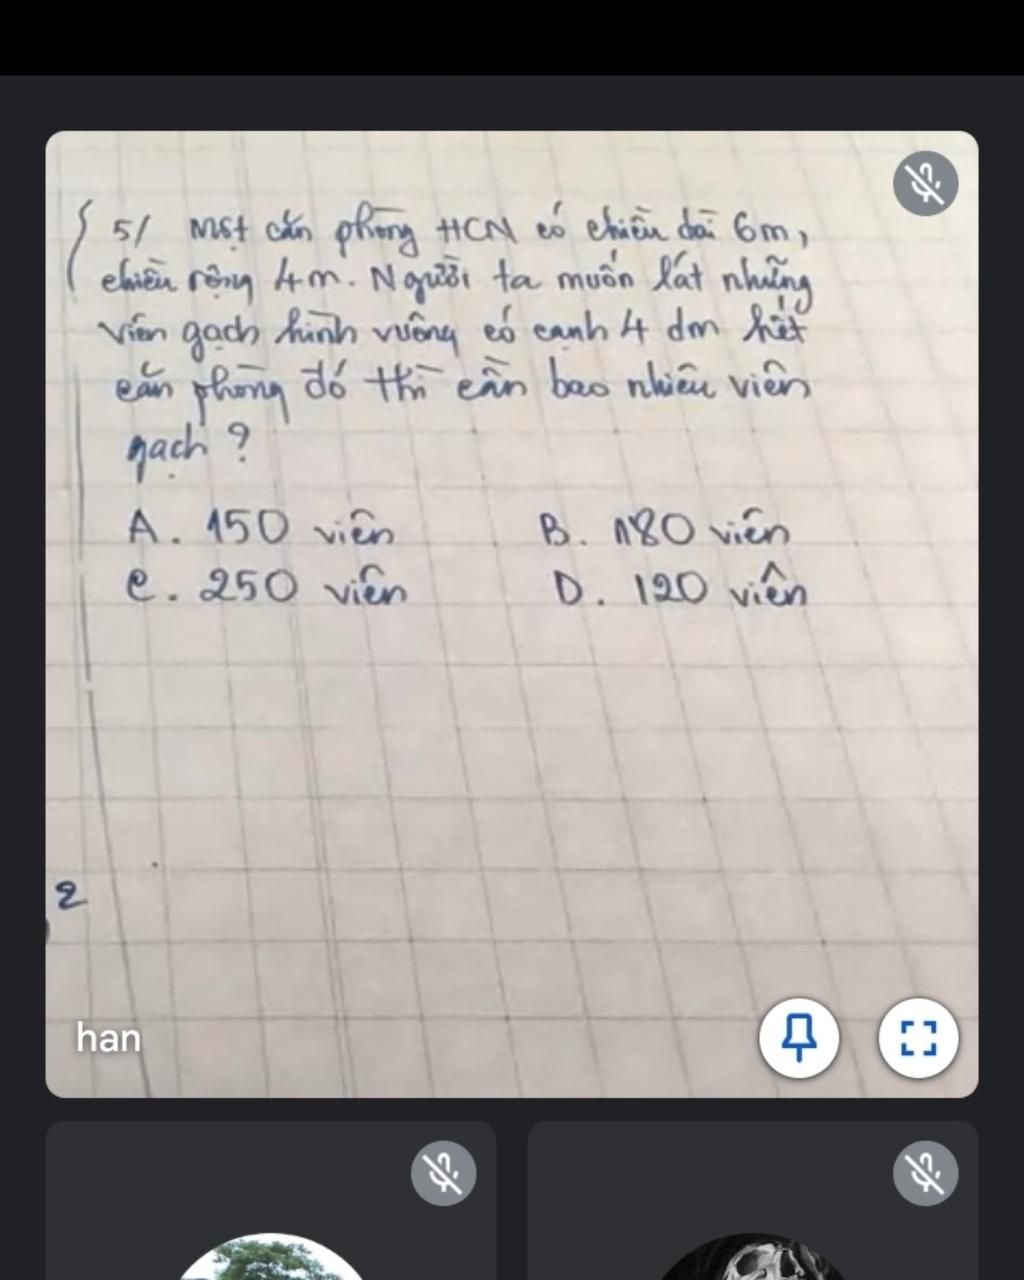 5/ Một căn phòng HCN có chiều dài 6m,
chiều rộng 4m. Người ta muốn lát những
viên gạch hình vuông có cạnh 4 dm hết
căn phòng đó thì cần bao nhiêu viên
gạch ?
A. 150 viên B. 180 viên
C. 250 viên D. 120 viên
2
han